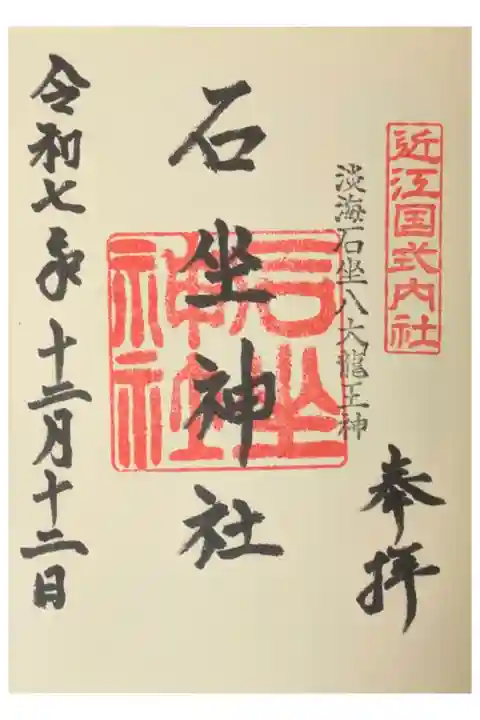 近江国式内社
奉拝
淡海石坐八大龍王神
石坐神社
石坐神社
令和七年十二月十二日